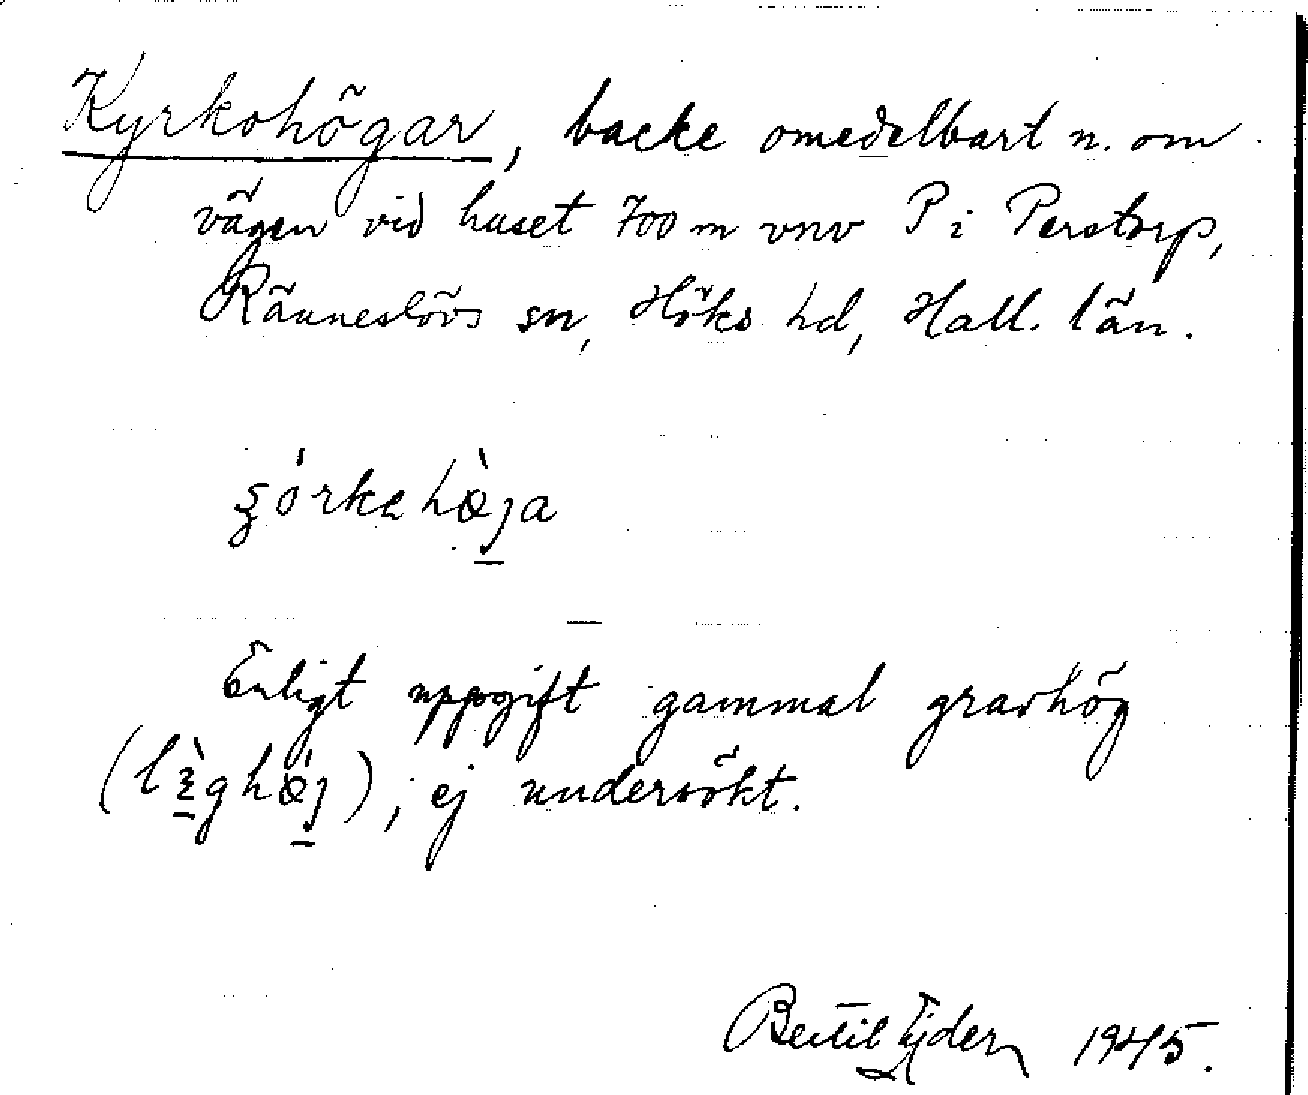 Kyrkohögar, backe omedelbart n. om
vägen vid huset 700 m vnv P i Perstorp,
Ränneslövs sn, Höks hd, Hall. län.
Enligt uppgift gammal gravhög
ej undersökt.
Bertil Ejder 1945.